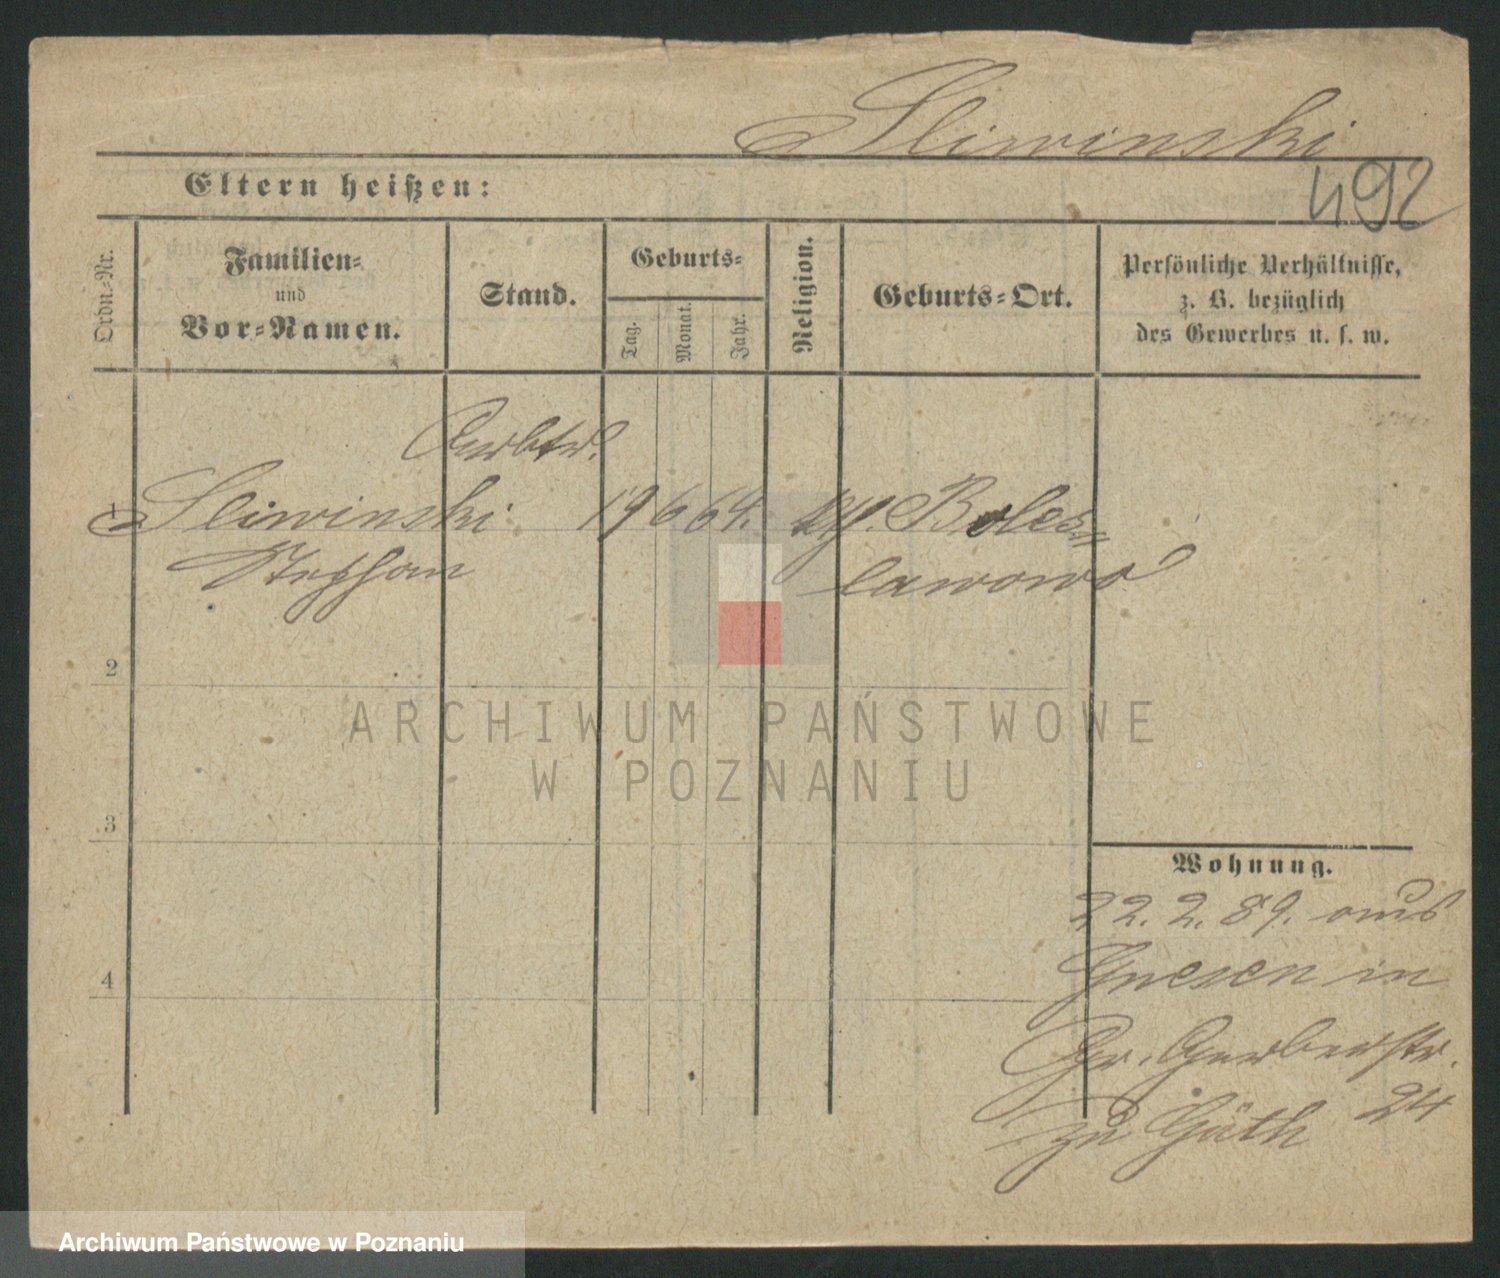 Sliwinski
492
Eltern heißen:
Ordn.-Nr.
Familien-
und
Vor-Namen.
Stand.
Geburts-
Tag.
Monat.
Jahr.
Religion.
Geburts-Ort.
Persönliche Verhältnisse,
z. B. bezüglich
des Gewerbes u. s. w.
1
Sliwinski 19 6 64. Boles-
Stephan lawowo
2
ARCHIWUM PAŃSTWOWE
W POZNANIU
3
Wohnung.
22. 2. 89. aus
4
Gnesen in
Gr. Gerberstr.
24
zu Güth
Archiwum Państwowe w Poznaniu